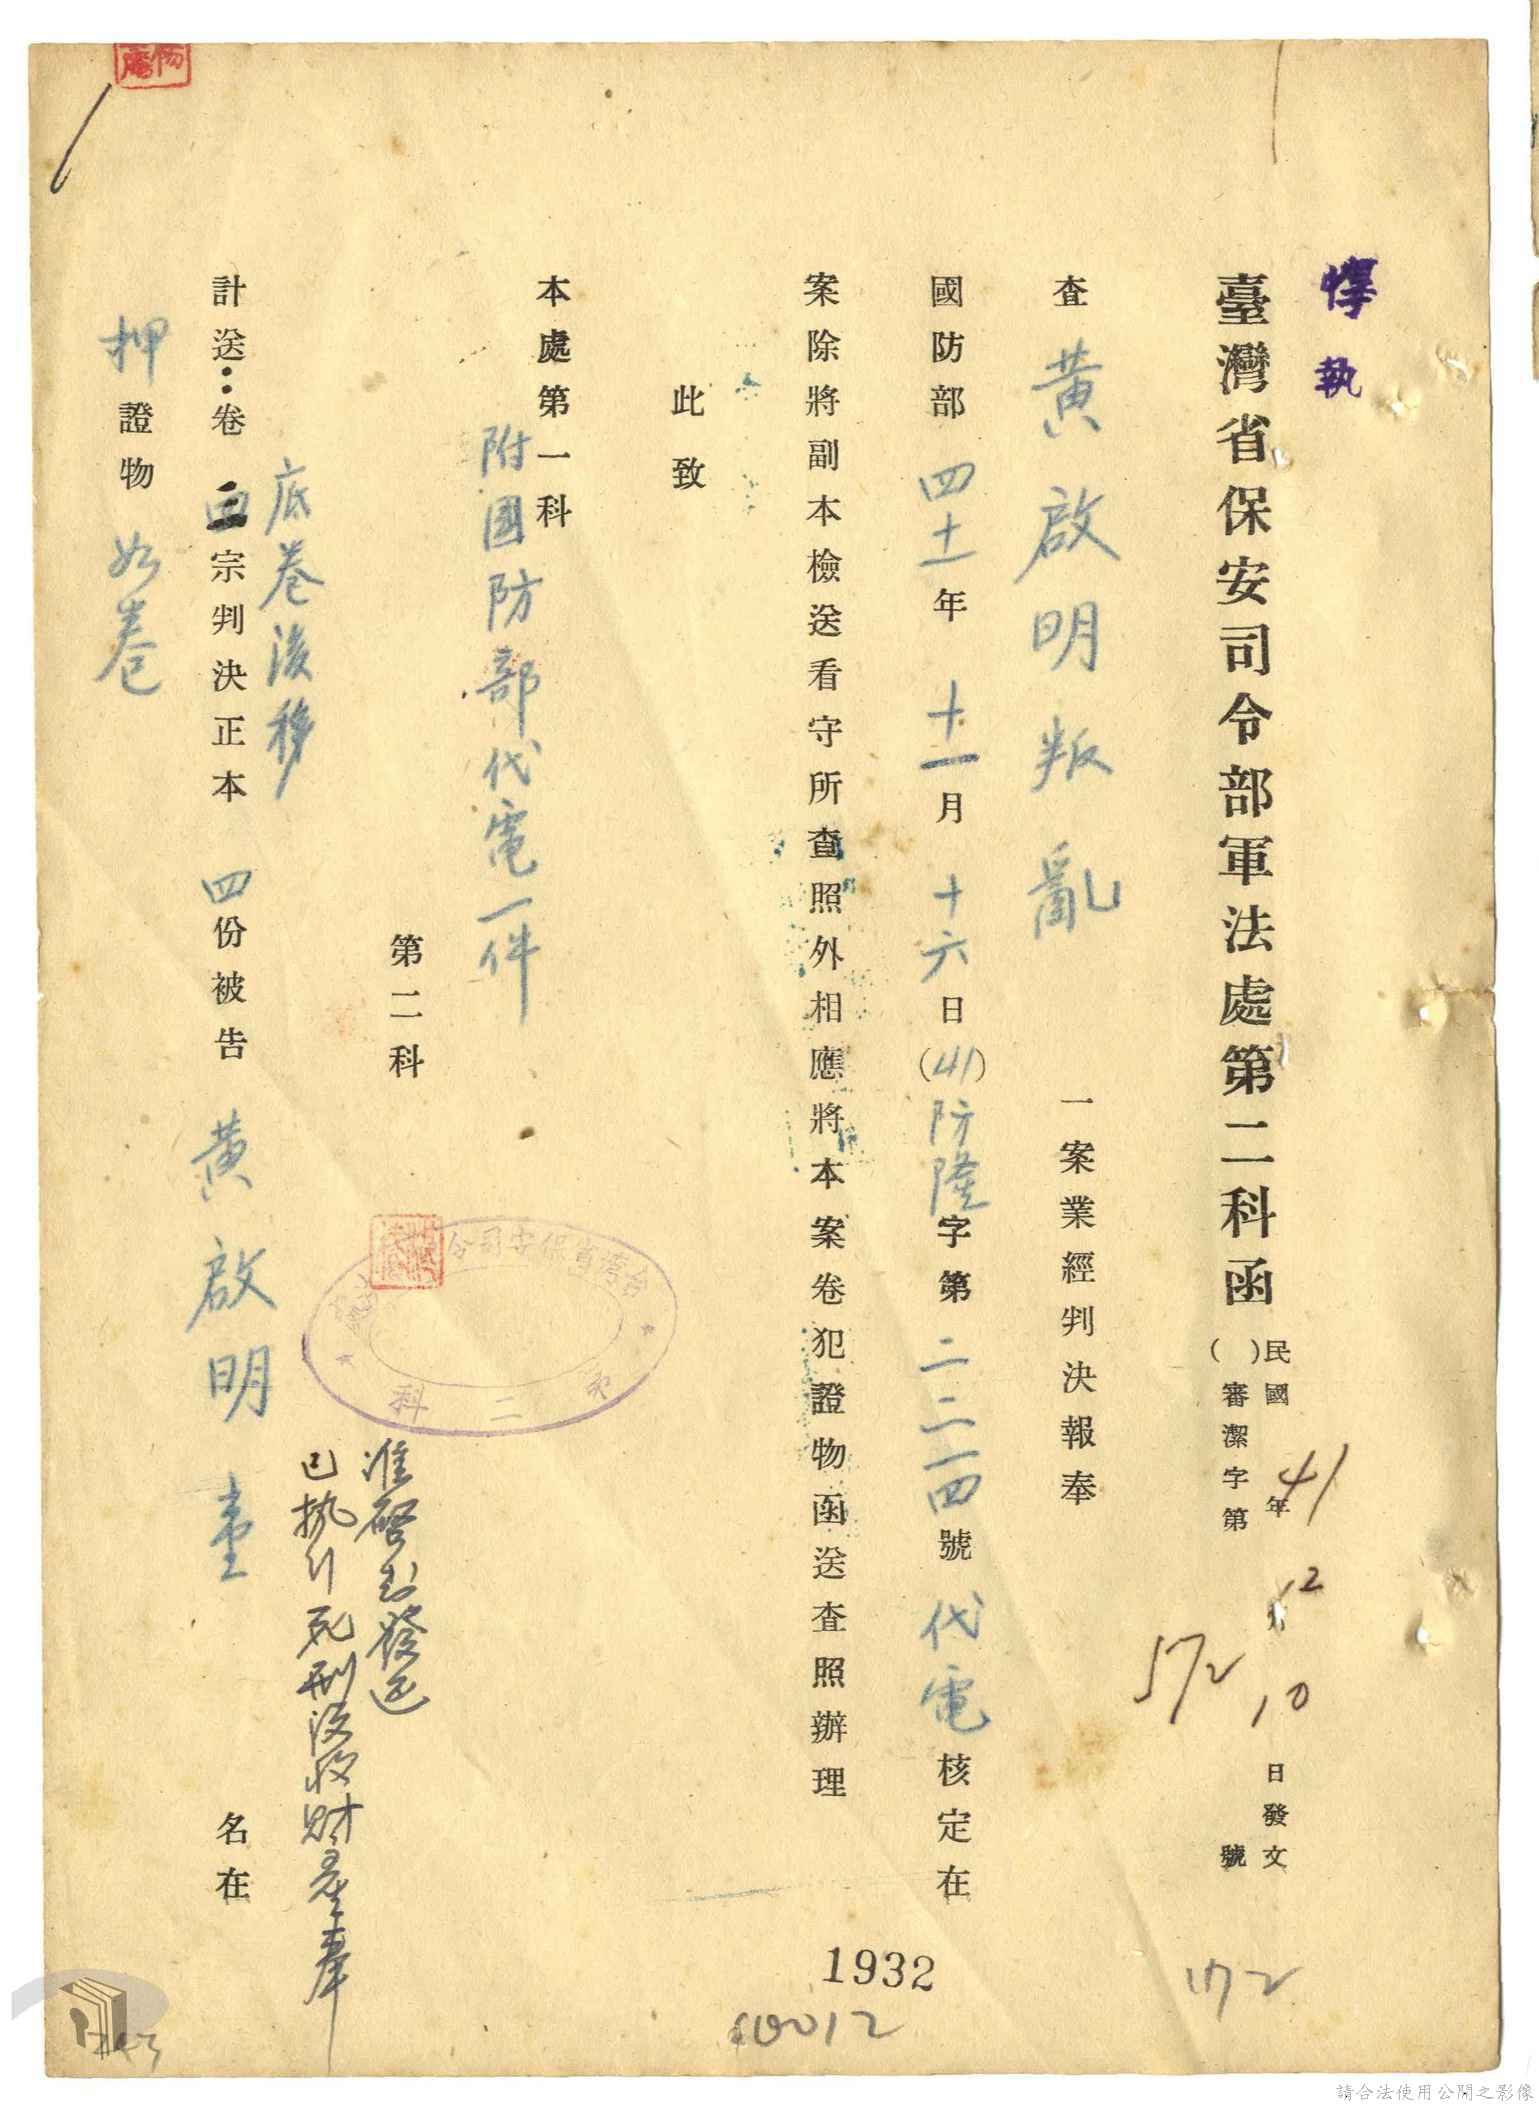 惸執
臺灣省保安司令部軍法處第二科函
民國41年12月10日發文
（　）審潔字第572號
查黃啟明叛亂一案業經判決報奉
國防部四十一年十一月十六日（41）防隆字第二二一四號代電核定在
案除將副本檢送看守所查照外相應將本案卷犯證物函送查照辦理
此致
本處第一科
附國防部代電一件
第二科
台灣省保安司令
第二科
准啓封發還
已執行死刑沒收財產奉
底卷後移
計送：卷三宗判決正本四份被告黃啟明壹名在
押證物如卷
1932
172
60012
請合法使用公開之影像